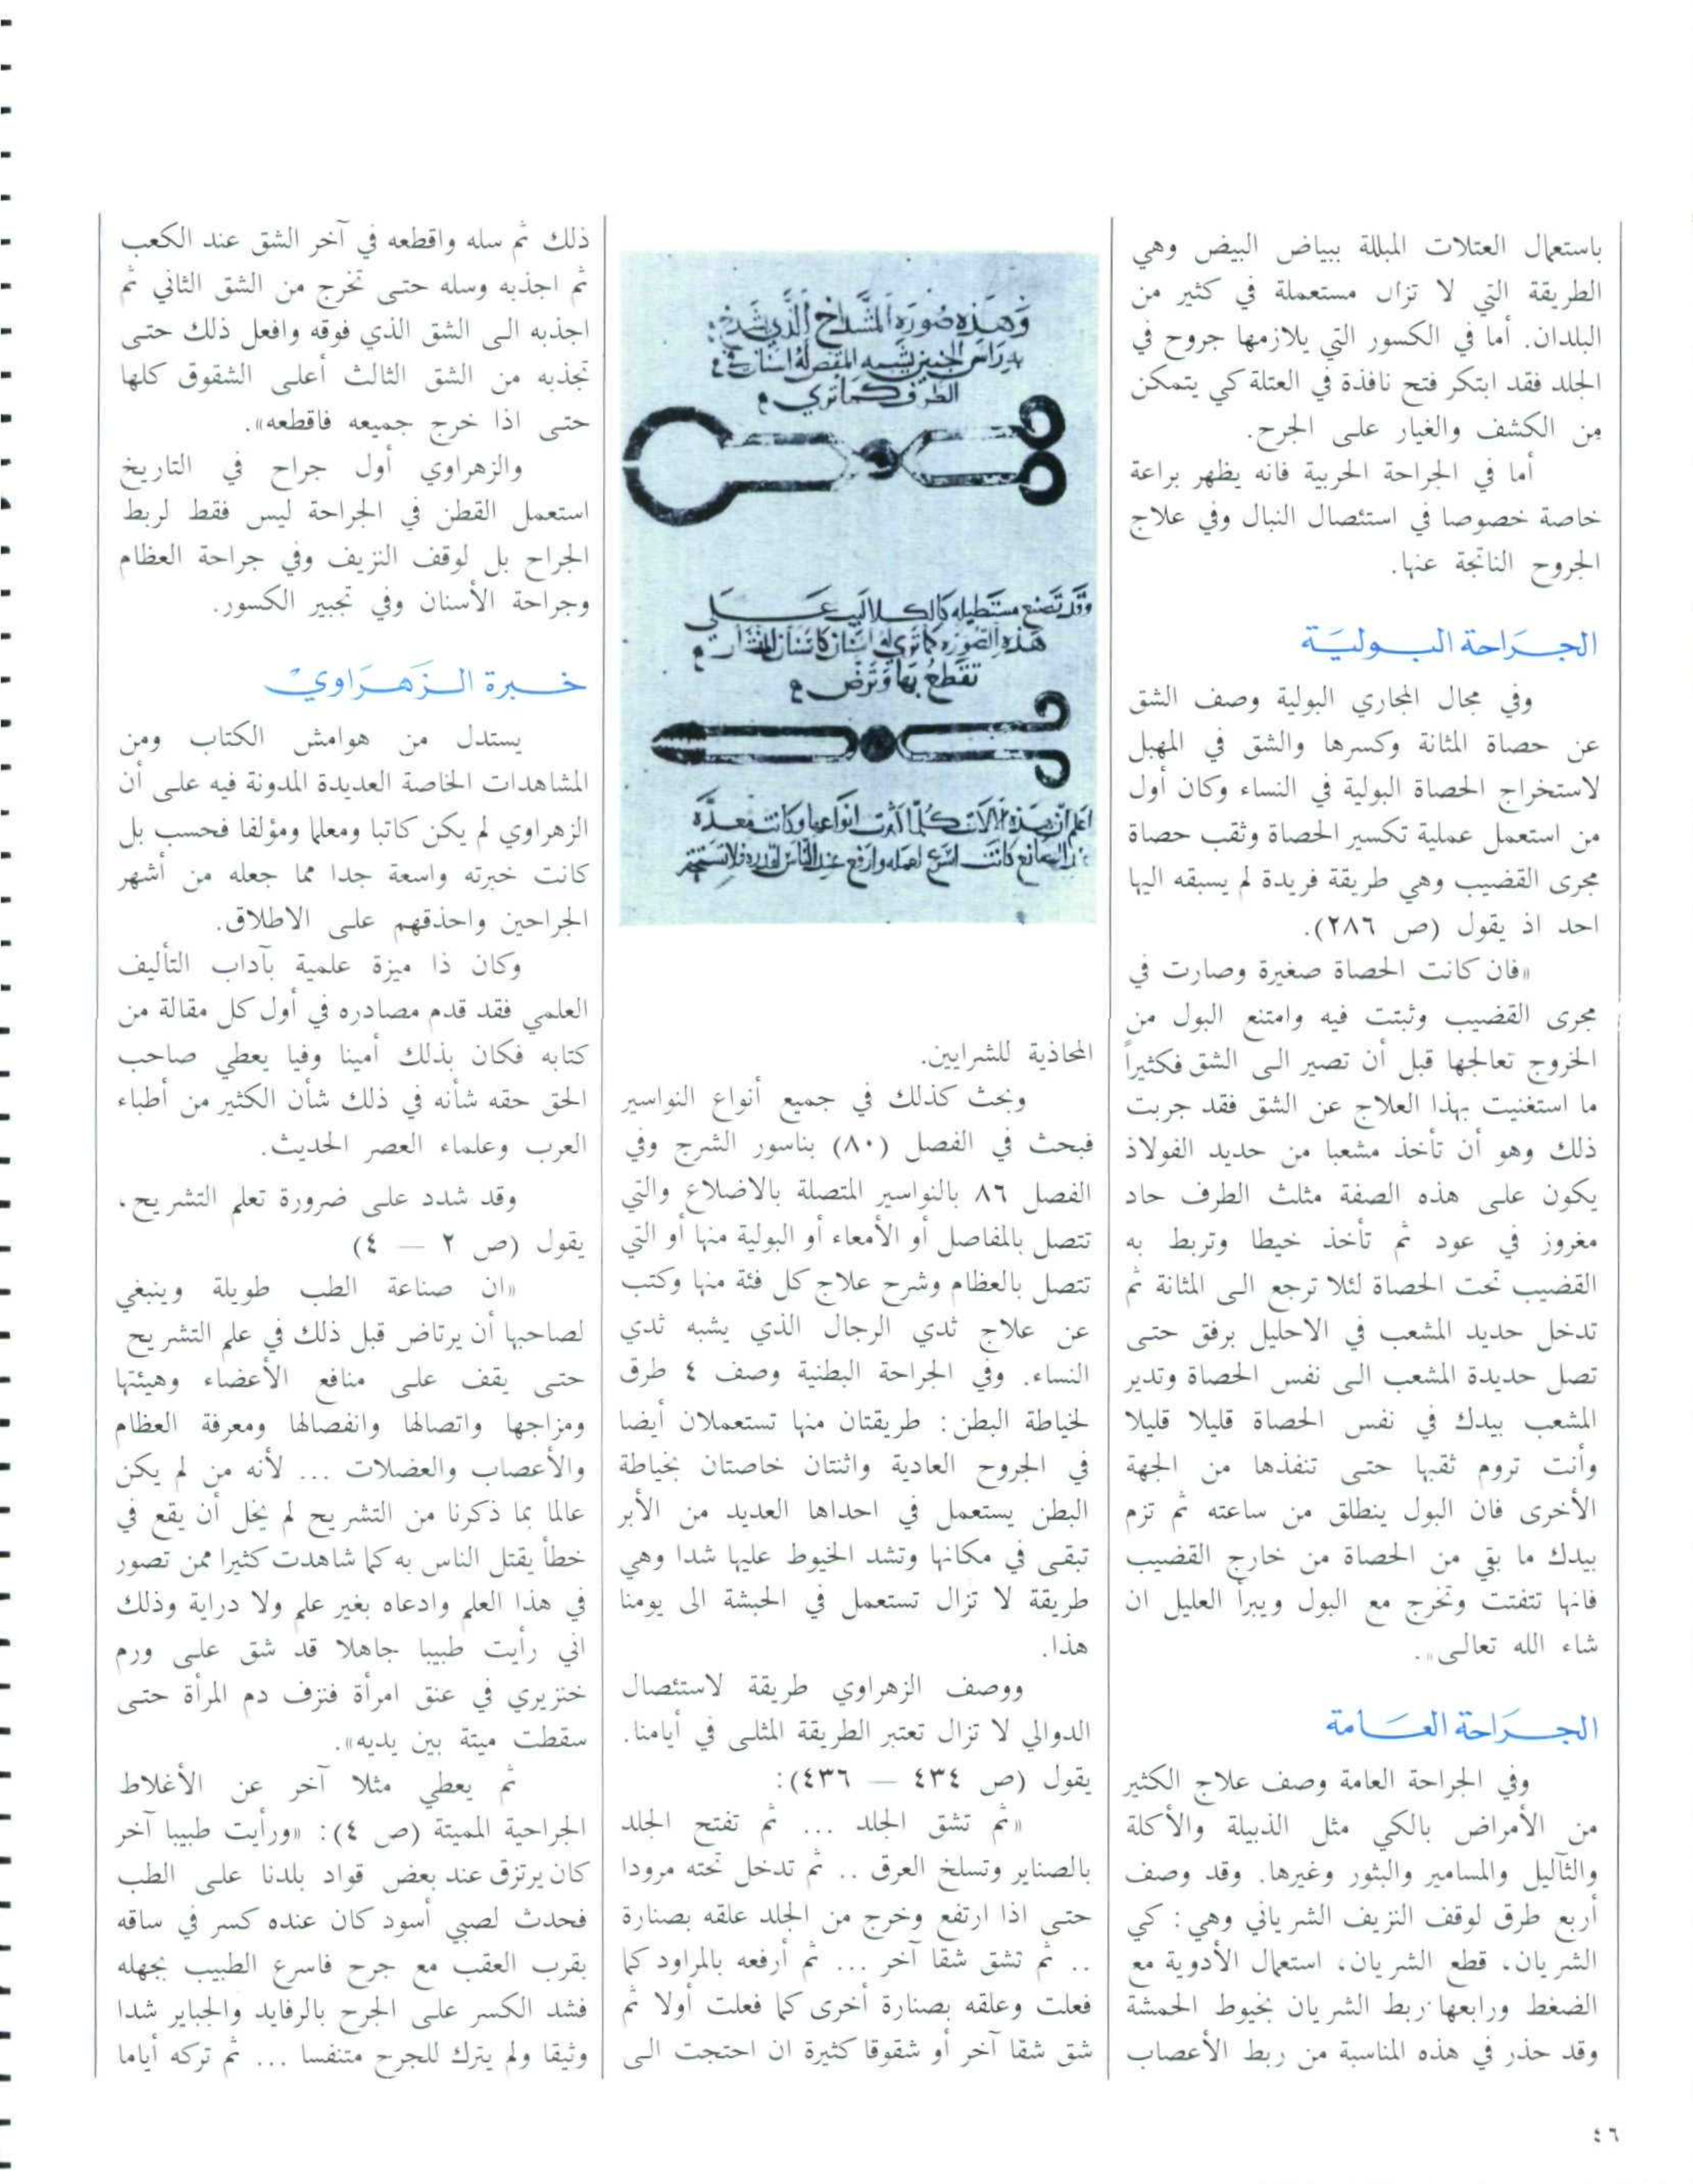 باستعمال العتلات المبللة ببياض البيض وهي
الطريقة التي لا تزال مستعملة في كثير من
البلدان. أما في الكسور التي يلازمها جروح في
الجلد فقد ابتكر فتح نافذة في العتلة كي يتمكن
من الكشف والغيار على الجرح.
أما في الجراحة الحربية فانه يظهر براعة
خاصة خصوصا في استئصال النبال وفي علاج
الجروح الناتجة عنها.
الجراحة البولية
وفي مجال المجاري البولية وصف الشق
عن حصاة المثانة وكسرها والشق في المهبل
لاستخراج الحصاة البولية في النساء وكان أول
من استعمل عملية تكسير الحصاة وثقب حصاة
مجرى القضيب وهي طريقة فريدة لم يسبقه اليها
احد اذ يقول (ص ٢٨٦).
«فان كانت الحصاة صغيرة وصارت في
مجرى القضيب وثبتت فيه وامتنع البول من
الخروج تعالجها قبل أن تصير الى الشق فكثيراً
ما استغنيت بهذا العلاج عن الشق فقد جربت
ذلك وهو أن تأخذ مشعبا من حديد الفولاذ
يكون على هذه الصفة مثلث الطرف حاد
مغروز في عود ثم تأخذ خيطا وتربط به
القضيب تحت الحصاة لئلا ترجع الى المثانة ثم
تدخل حديد المشعب في الاحليل برفق حتى
تصل حديدة المشعب الى نفس الحصاة وتدير
المشعب بيدك في نفس الحصاة قليلا قليلا
وأنت تروم ثقبها حتى تنفذها من الجهة
الأخرى فان البول ينطلق من ساعته ثم تزم
بيدك ما بقي من الحصاة من خارج القضيب
فانها تتفتت وتخرج مع البول ويبرأ العليل ان
شاء الله تعالى».
الجراحة العامة
وفي الجراحة العامة وصف علاج الكثير
من الأمراض بالكي مثل الذبيلة والأكلة
والثآليل والمسامير والبثور وغيرها. وقد وصف
أربع طرق لوقف النزيف الشرياني وهي: كي
الشريان، قطع الشريان، استعمال الأدوية مع
الضغط ورابعها ربط الشريان بخيوط الحمشة
وقد حذر في هذه المناسبة من ربط الأعصاب
وَهَذِهِ صُورَة المشداخ الَّذي يشدخ
به رأس الجنين يشبه المقص له اسنان في
الطرف كما تري
وقد تصنع مستطيله كالكلاليب على
هذه الصوره كما تري لها اسنان كاسنان المنشار
تقطع بها وترض
اعلم ان هذه الالات كلما كثرت انواعها وكانت معدة
المحاذية للشرايين.
وبحث كذلك في جميع أنواع النواسير
فبحث في الفصل (٨٠) بناسور الشرج وفي
الفصل ٨٦ بالنواسير المتصلة بالاضلاع والتي
تتصل بالمفاصل أو الأمعاء أو البولية منها أو التي
تتصل بالعظام وشرح علاج كل فئة منها وكتب
عن علاج ثدي الرجال الذي يشبه ثدي
النساء. وفي الجراحة البطنية وصف ٤ طرق
لخياطة البطن: طريقتان منها تستعملان أيضا
في الجروح العادية واثنتان خاصتان بخياطة
البطن يستعمل في احداها العديد من الأبر
تبقى في مكانها وتشد الخيوط عليها شدا وهي
طريقة لا تزال تستعمل في الحبشة الى يومنا
هذا.
ووصف الزهراوي طريقة لاستئصال
الدوالي لا تزال تعتبر الطريقة المثلى في أيامنا.
يقول (ص ٤٣٤ — ٤٣٦):
«ثم تشق الجلد ... ثم تفتح الجلد
بالصناير وتسلخ العرق .. ثم تدخل تحته مرودا
حتى اذا ارتفع وخرج من الجلد علقه بصنارة
.. ثم تشق شقا آخر ... ثم أرفعه بالمراود كما
فعلت وعلقه بصنارة أخرى كما فعلت أولا ثم
شق شقا آخر أو شقوقا كثيرة ان احتجت الى
ذلك ثم سله واقطعه في آخر الشق عند الكعب
ثم اجذبه وسله حتى تخرج من الشق الثاني ثم
اجذبه الى الشق الذي فوقه وافعل ذلك حتى
تجذبه من الشق الثالث أعلى الشقوق كلها
حتى اذا خرج جميعه فاقطعه».
والزهراوي أول جراح في التاريخ
استعمل القطن في الجراحة ليس فقط لربط
الجراح بل لوقف النزيف وفي جراحة العظام
وجراحة الأسنان وفي تجبير الكسور.
خبرة الزهراوي
يستدل من هوامش الكتاب ومن
المشاهدات الخاصة العديدة المدونة فيه على أن
الزهراوي لم يكن كاتبا ومعلما ومؤلفا فحسب بل
كانت خبرته واسعة جدا مما جعله من أشهر
الجراحين واحذقهم على الاطلاق.
وكان ذا ميزة علمية بآداب التأليف
العلمي فقد قدم مصادره في أول كل مقالة من
كتابه فكان بذلك أمينا وفيا يعطي صاحب
الحق حقه شأنه في ذلك شأن الكثير من أطباء
العرب وعلماء العصر الحديث.
وقد شدد على ضرورة تعلم التشريح.
يقول (ص ٢ — ٤)
«ان صناعة الطب طويلة وينبغي
لصاحبها أن يرتاض قبل ذلك في علم التشريح
حتى يقف على منافع الأعضاء وهيئتها
ومزاجها واتصالها وانفصالها ومعرفة العظام
والأعصاب والعضلات ... لأنه من لم يكن
عالما بما ذكرنا من التشريح لم يخل أن يقع في
خطأ يقتل الناس به كما شاهدت كثيرا ممن تصور
في هذا العلم وادعاه بغير علم ولا دراية وذلك
اني رأيت طبيبا جاهلا قد شق على ورم
خنزيري في عنق امرأة فنزف دم المرأة حتى
سقطت ميتة بين يديه».
ثم يعطي مثلا آخر عن الأغلاط
الجراحية المميتة (ص ٤): «ورأيت طبيبا آخر
كان يرتزق عند بعض قواد بلدنا على الطب
فحدث لصبي أسود كان عنده كسر في ساقه
بقرب العقب مع جرح فاسرع الطبيب بجهله
فشد الكسر على الجرح بالرفايد والجباير شدا
وثيقا ولم يترك للجرح متنفسا ... ثم تركه أياما
٤٦